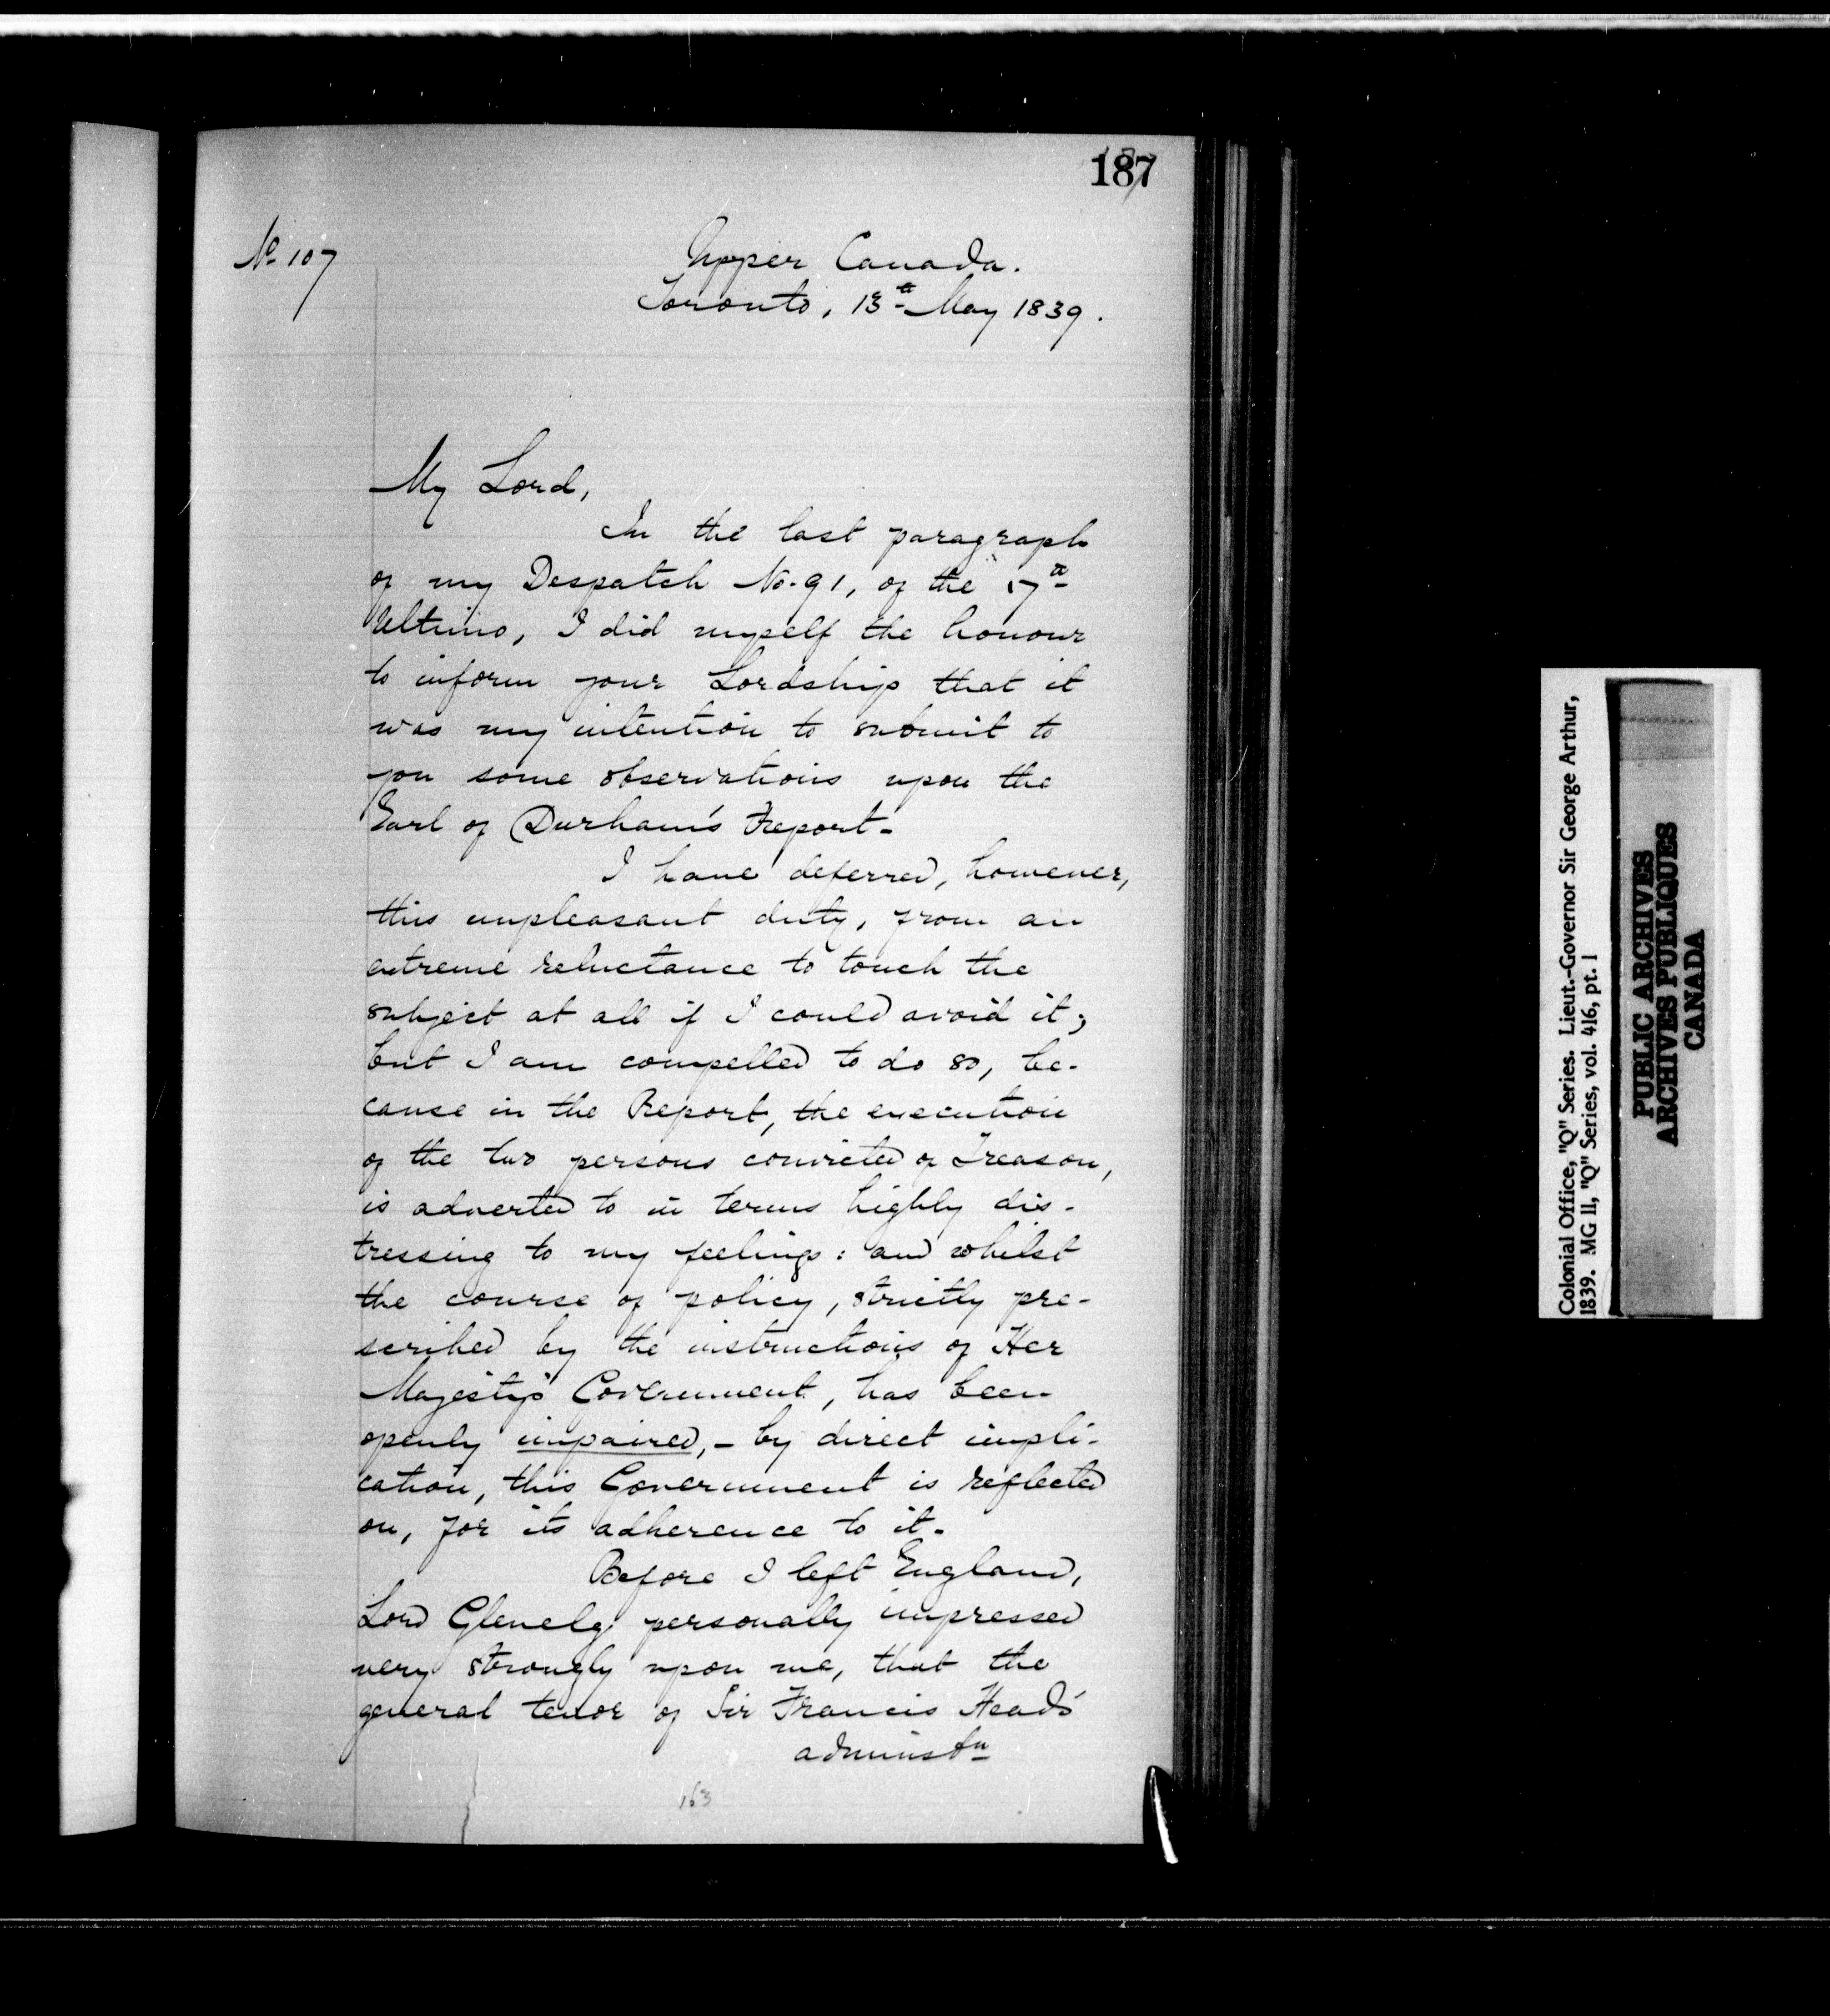 187
No 107
Upper Canada.
Toronto, 13th May 1839.
My Lord,
In the last paragraph
of my Despatch No. 91, of the 17th
Ultimo, I did myself the honour
to inform your Lordship that it
was my intention to submit to
you some observations upon the
Earl of Durham's Report.
I have deferred, however,
this unpleasant duty, from an
extreme reluctance to touch the
subject at all if I could avoid it;
but I am compelled to do so, be-
cause in the Report, the execution
of the two persons convicted of Treason,
is adverted to in terms highly dis-
tressing to my feelings: and whilst
the course of policy, strictly pre-
scribed by the instructions of Her
Majesty's Government, has been
openly impaired, - by direct impli-
cation, this Government is reflected
on, for its adherence to it.
Before I left England,
Lord Glenelg personally impressed
very strongly upon me, that the
general tenor of Sir Francis Head's
administn
163
Colonial Office, "Q" Series. Lieut.-Governor Sir George Arthur,
1839. MG 11, "Q" Series, vol. 416, pt. 1
PUBLIC ARCHIVES
ARCHIVES PUBLIQUES
CANADA